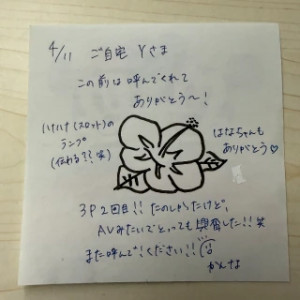 4/11 ご自宅 Yさま
この前は呼んでくれて
ありがとう〜!
ハナハナ(スロット)の
ランプ
(伝わる??笑)
はなちゃんも
ありがとう♡
3P 2回目!! たのしかったけど、
AVみたいでとっても興奮した!!笑
また呼んで!ください!!
かんな